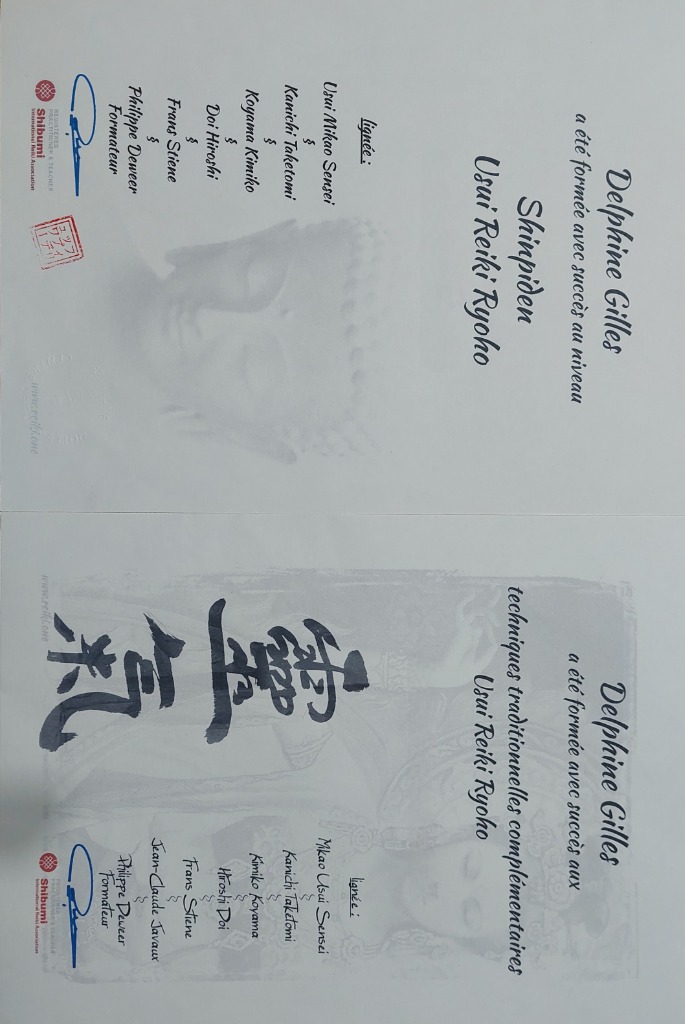 Delphine Gilles
a été formée avec succès au niveau
Shinpiden
Usui Reiki Ryoho
lignée :
Usui Mikao Sensei
§
Kanichi Taketomi
§
Koyama Kimiko
§
Doi Hiroshi
§
Frans Stiene
§
Philippe Deweer
Formateur
REGISTERED
PRACTITIONER & TEACHER
Shibumi
International Reiki Association
www.reiki.one
Delphine Gilles
a été formée avec succès aux
techniques traditionnelles complémentaires
Usui Reiki Ryoho
靈氣
lignée :
Mikao Usui Sensei
§
Kanichi Taketomi
§
Kimiko Koyama
§
Hiroshi Doi
§
Frans Stiene
§
Jean-Claude Javaux
§
Philippe Deweer
Formateur
Shibumi
International Reiki Association
www.reiki.one